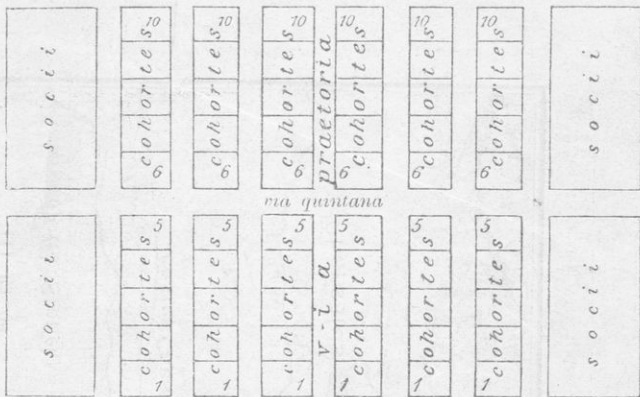 socii
10 cohortes 6
10 cohortes 6
10 cohortes 6
praetoria
10 cohortes 6
10 cohortes 6
10 cohortes 6
socii
via quintana
socii
5 cohortes 1
5 cohortes 1
5 cohortes 1
v-i a
5 cohortes 1
5 cohortes 1
5 cohortes 1
socii